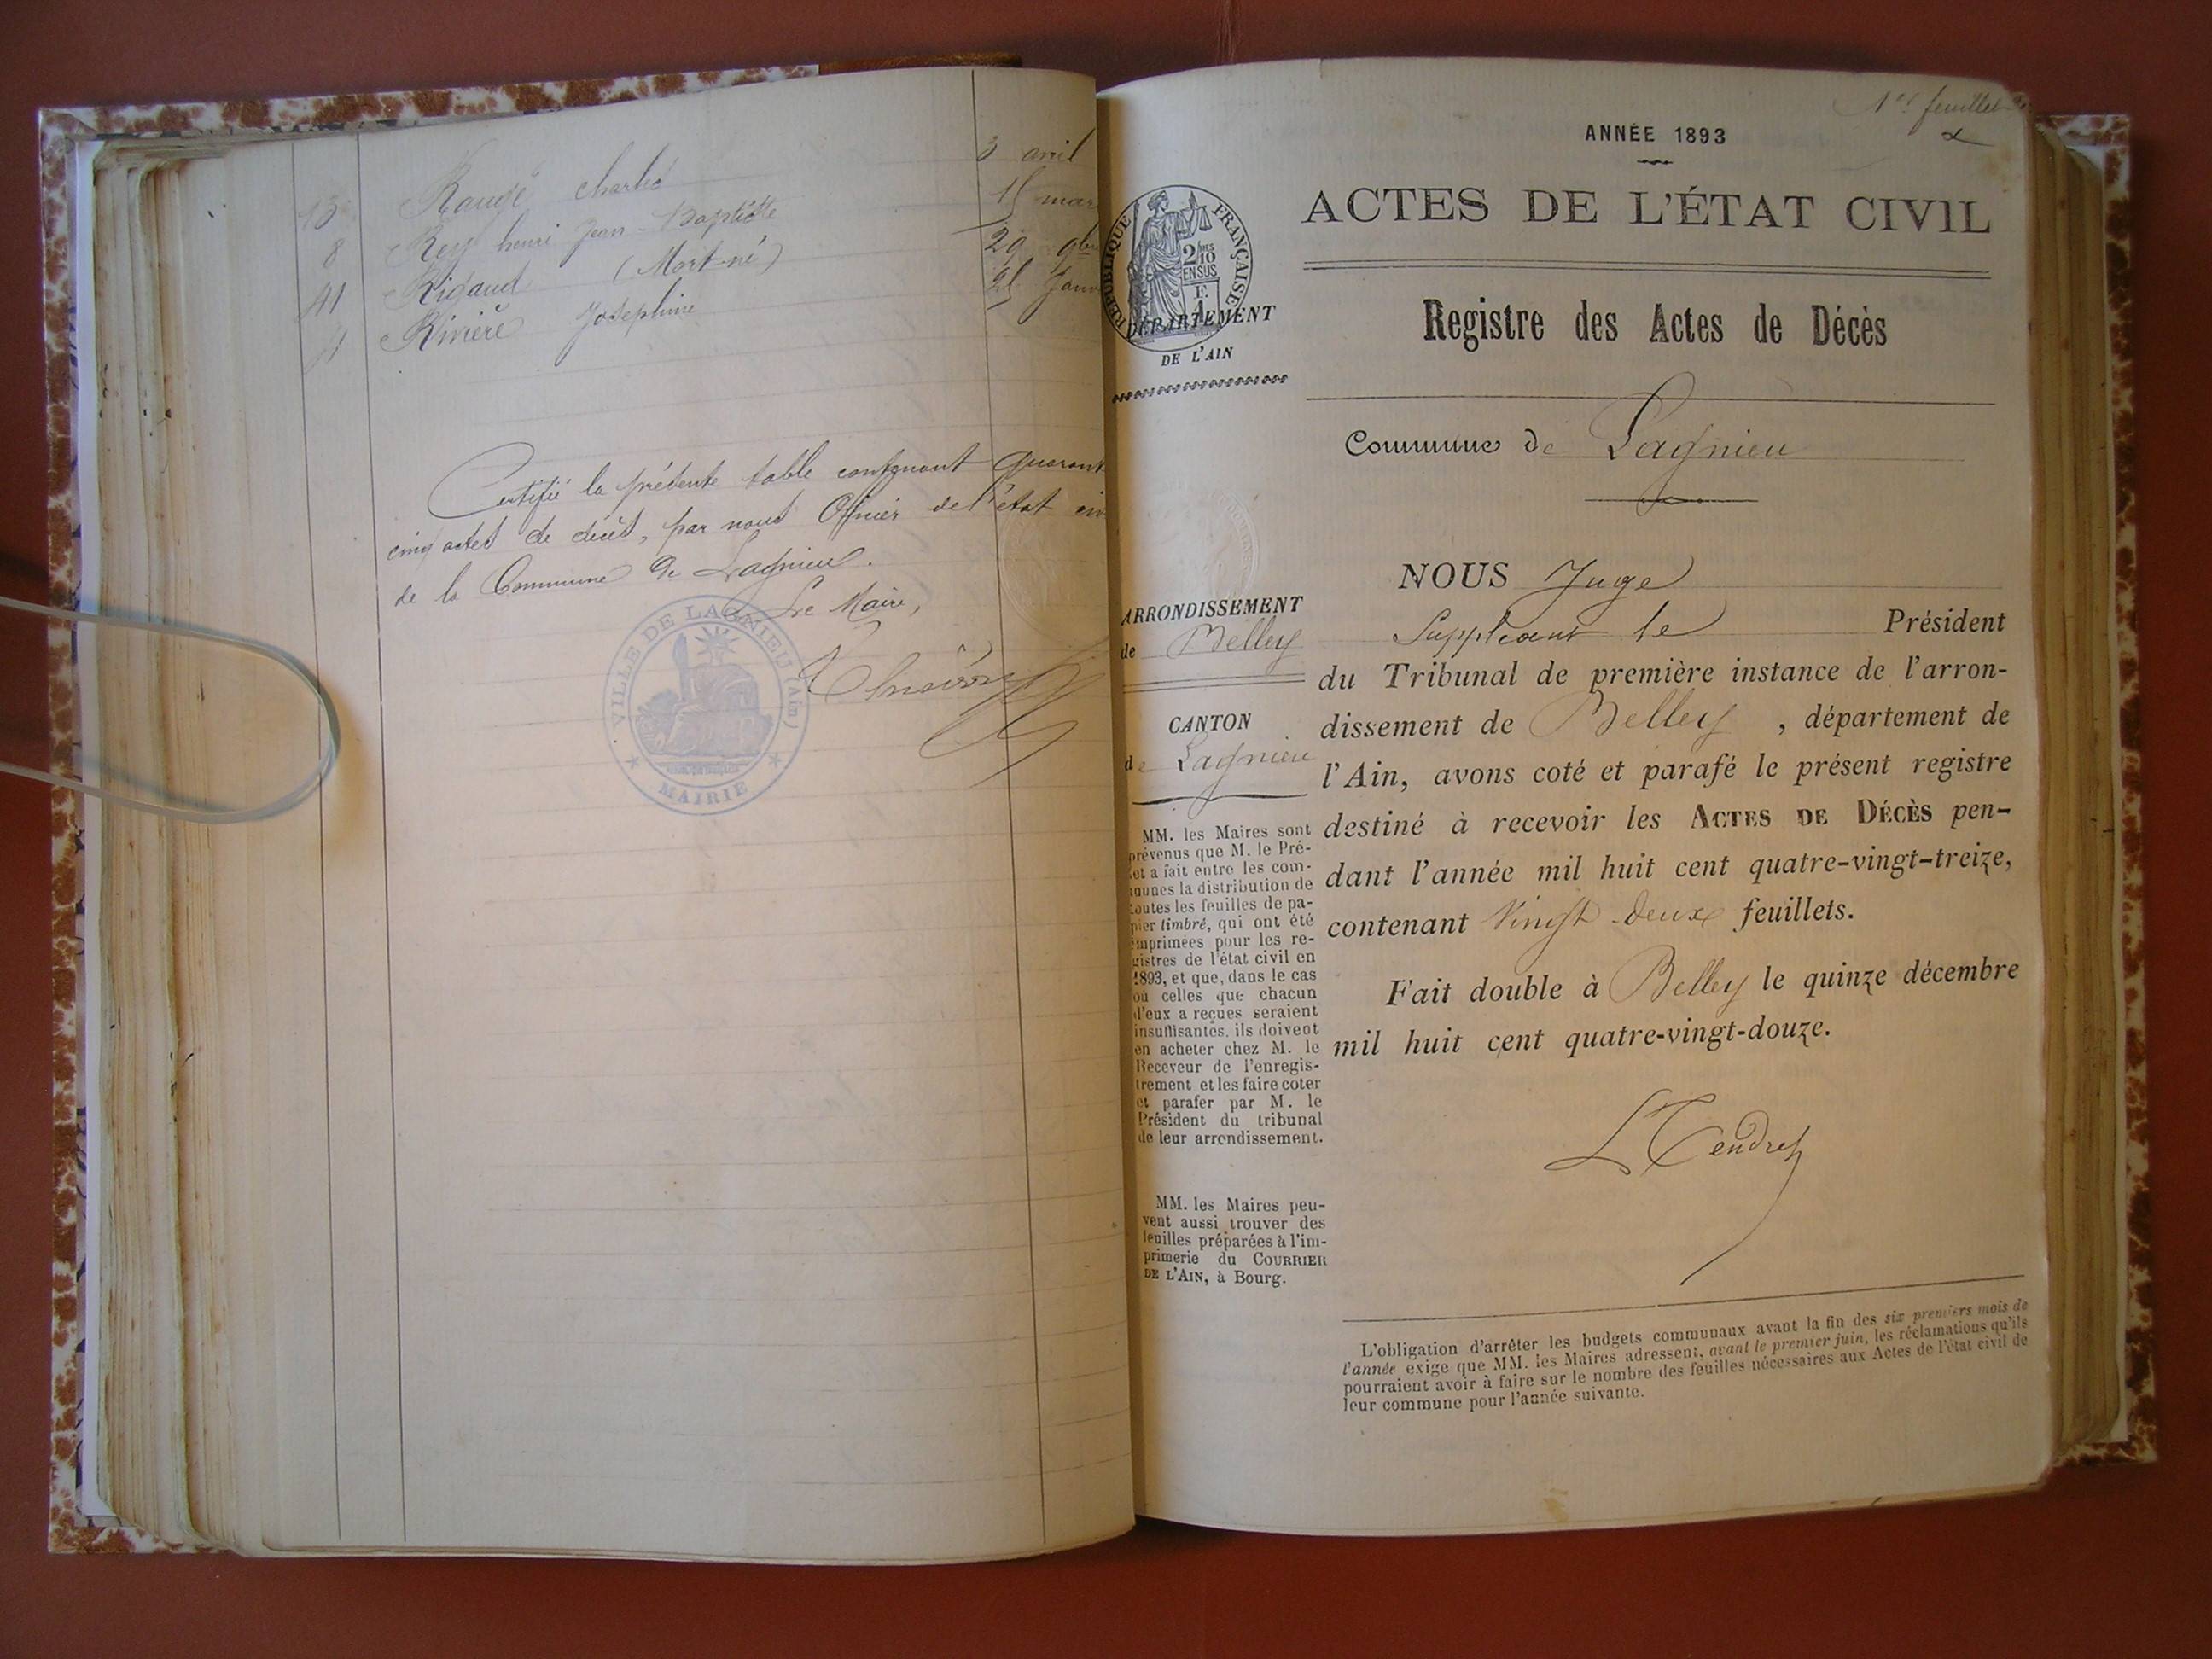 3 avril
13 Charles
8 Rey henri Jean-Baptiste 15 mar
41 Rigaud (Mort-né) 29 9b
Rivière Josephine Janv
Certifié la présente table contenant quarant
cinq actes de décès, par nous Officier de l'état civ
de la Commune de Lagnieu.
Le Maire,
VILLE DE LAGNIEU (Ain)
MAIRIE
1er feuillet
ANNÉE 1893
ACTES DE L'ÉTAT CIVIL
RÉPUBLIQUE FRANÇAISE
2/10
EN SUS
DÉPARTEMENT
DE L'AIN
Registre des Actes de Décès
Commune de Lagnieu
ARRONDISSEMENT
de Belley
CANTON
de Lagnieu
MM. les Maires sont
prévenus que M. le Pré-
fet a fait entre les com-
munes la distribution de
toutes les feuilles de pa-
pier timbré, qui ont été
imprimées pour les re-
gistres de l'état civil en
1893, et que, dans le cas
où celles que chacun
d'eux a reçues seraient
insuffisantes, ils doivent
en acheter chez M. le
Receveur de l'enregis-
trement et les faire coter
et parafer par M. le
Président du tribunal
de leur arrondissement.
MM. les Maires peu-
vent aussi trouver des
feuilles préparées à l'im-
primerie du COURRIER
DE L'AIN, à Bourg.
NOUS Juge
Suppléant le Président
du Tribunal de première instance de l'arron-
dissement de Belley, département de
l'Ain, avons coté et parafé le présent registre
destiné à recevoir les ACTES DE DÉCÈS pen-
dant l'année mil huit cent quatre-vingt-treize,
contenant Vingt deux feuillets.
Fait double à Belley le quinze décembre
mil huit cent quatre-vingt-douze.
L Tendret
L'obligation d'arrêter les budgets communaux avant la fin des six premiers mois de
l'année exige que MM. les Maires adressent, avant le premier juin, les réclamations qu'ils
pourraient avoir à faire sur le nombre des feuilles nécessaires aux Actes de l'état civil de
leur commune pour l'année suivante.